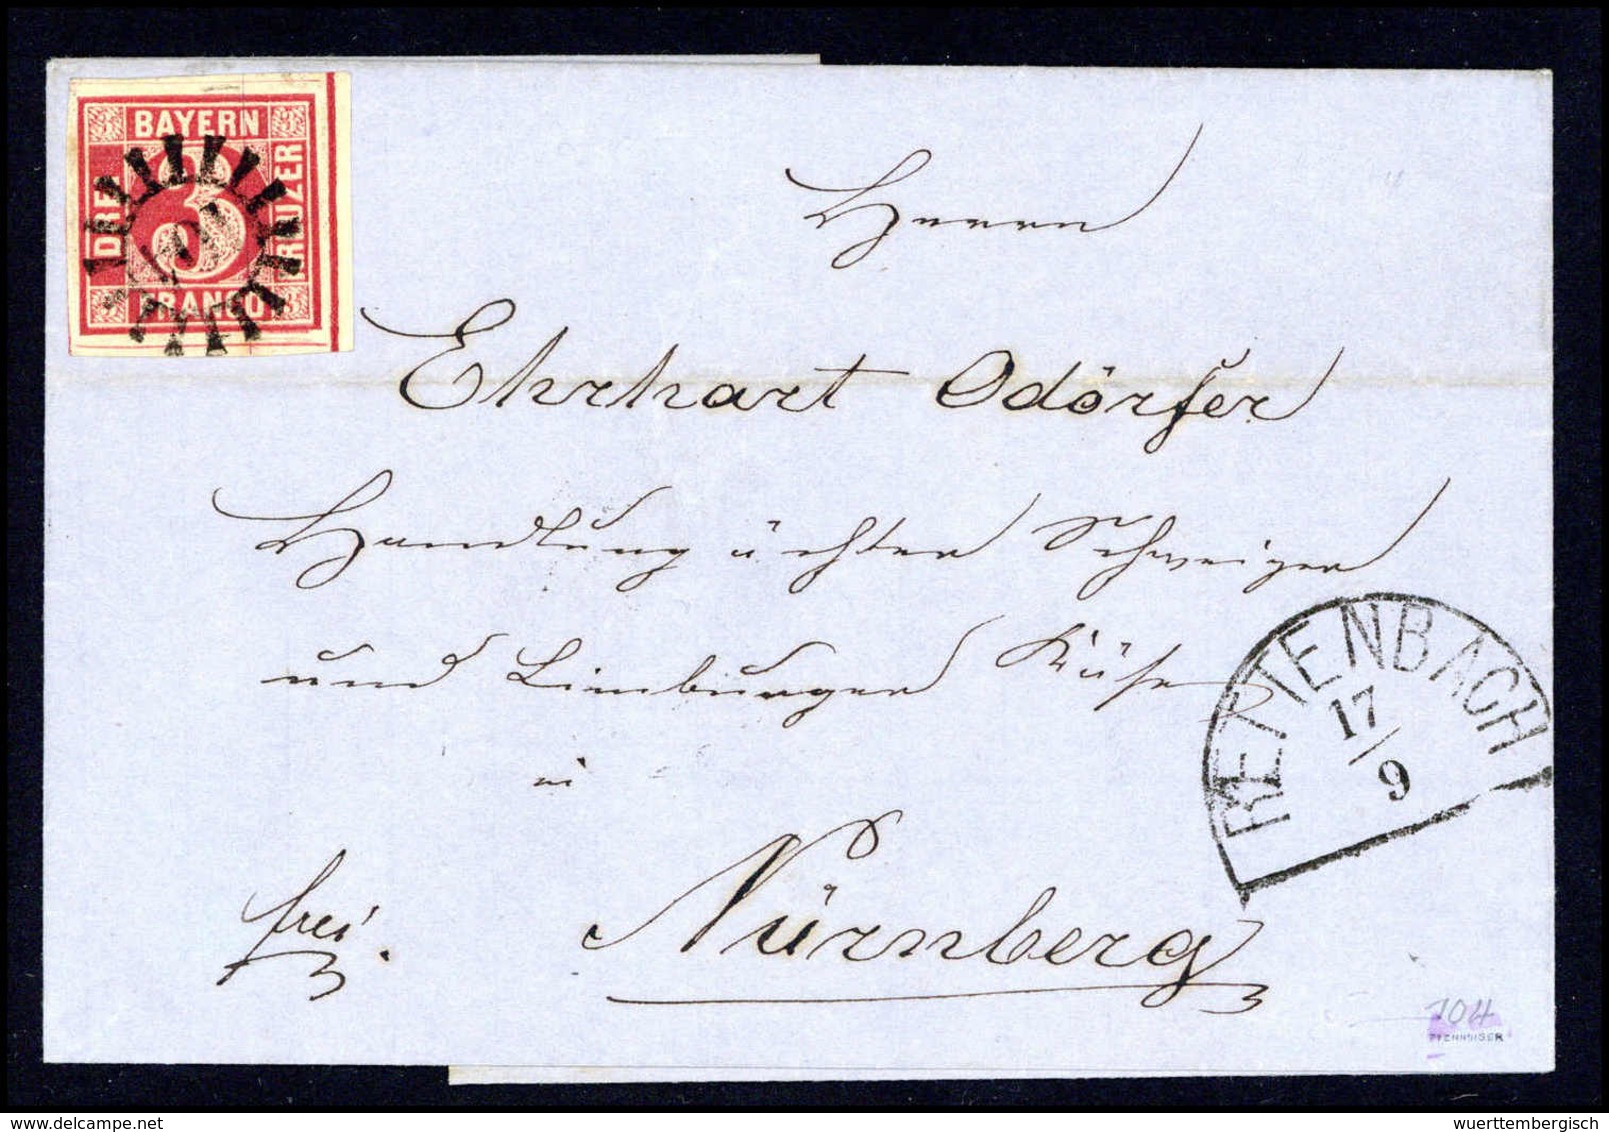 BAYERN
DREI
KREUZER
FRANCO
3
Herrn
Ehrhart Odörfer
Handlung ächter Schweizer
und Limburger Käse
in
Nürnberg
frei.
RETTENBACH
17/9
104
PFENNINGER
delcampe.net
wuerttembergisch